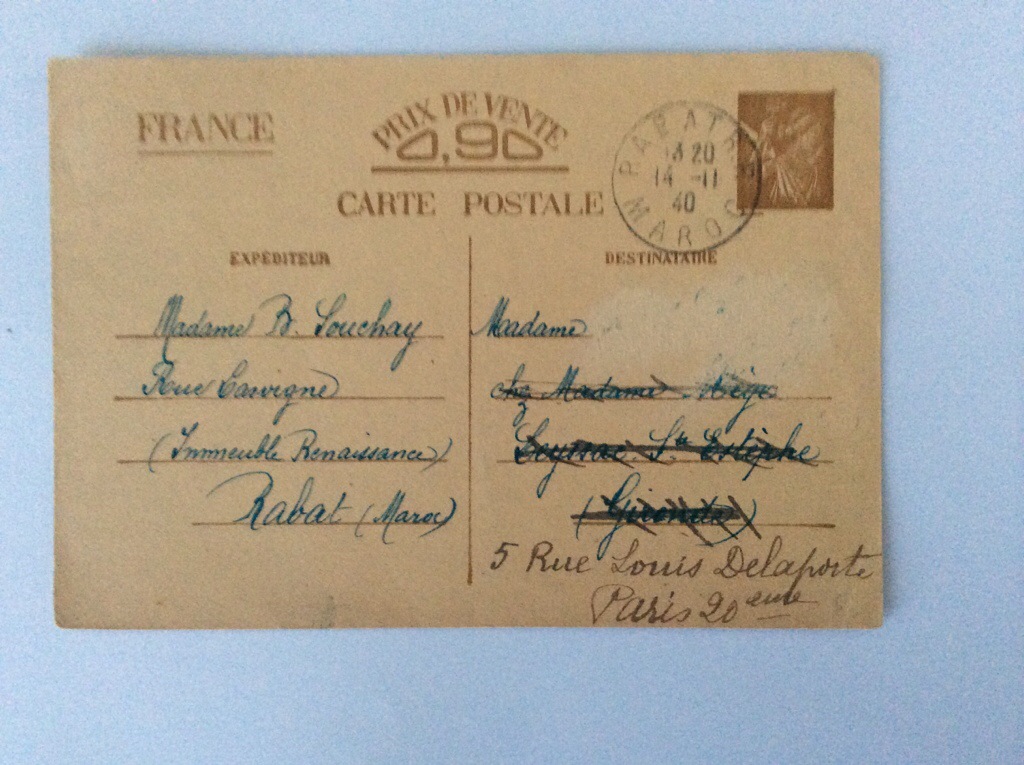 FRANCE
PRIX DE VENTE
0,90
CARTE POSTALE
RABAT
13 20
14 -11
40
MAROC
EXPÉDITEUR
Madame B. Souchay
Rue
(Immeuble Renaissance)
Rabat (Maroc)
DESTINATAIRE
Madame
chez Madame
Leyssac. St. Estèphe
(Gironde)
5 Rue Louis Delaporte
Paris 20 eme